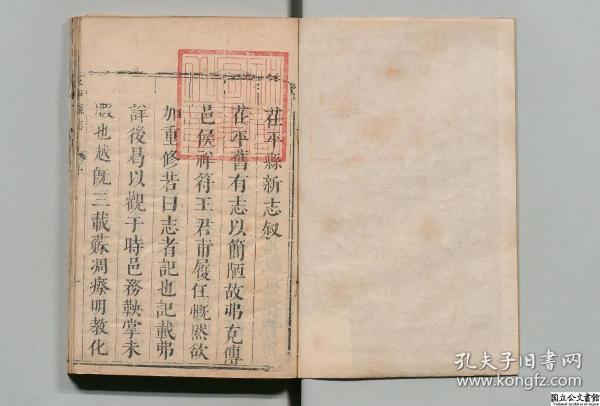 茌平縣新志叙
茌平舊有志以簡陋故弗克傳
邑侯祥符王君甫履任慨然欲
加重修若曰志者記也記載弗
詳後曷以觀于時邑務鞅掌未
暇也越旣三載蘇凋瘵明教化
孔夫子旧书网
www.kongfz.com
国立公文書館
National Archives of Japan